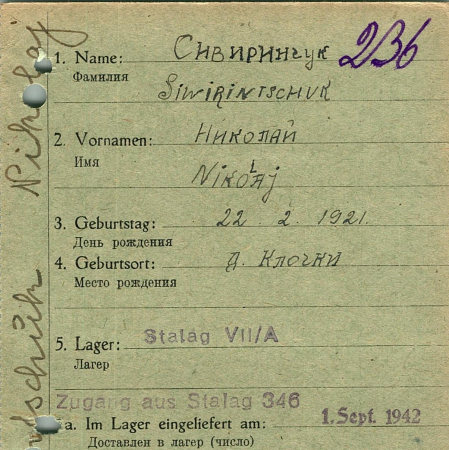 1. Name: Сивиринчук 236
Фамилия
Siwirintschuk
2. Vornamen: Николай
Имя
Nikolaj
3. Geburtstag: 22. 2. 1921.
День рождения
4. Geburtsort: д. Клочки
Место рождения
5. Lager: Stalag VII/A
Лагерь
Zugang aus Stalag 346
a. Im Lager eingeliefert am: 1. Sept. 1942
Доставлен в лагерь (число)
Nikolaj